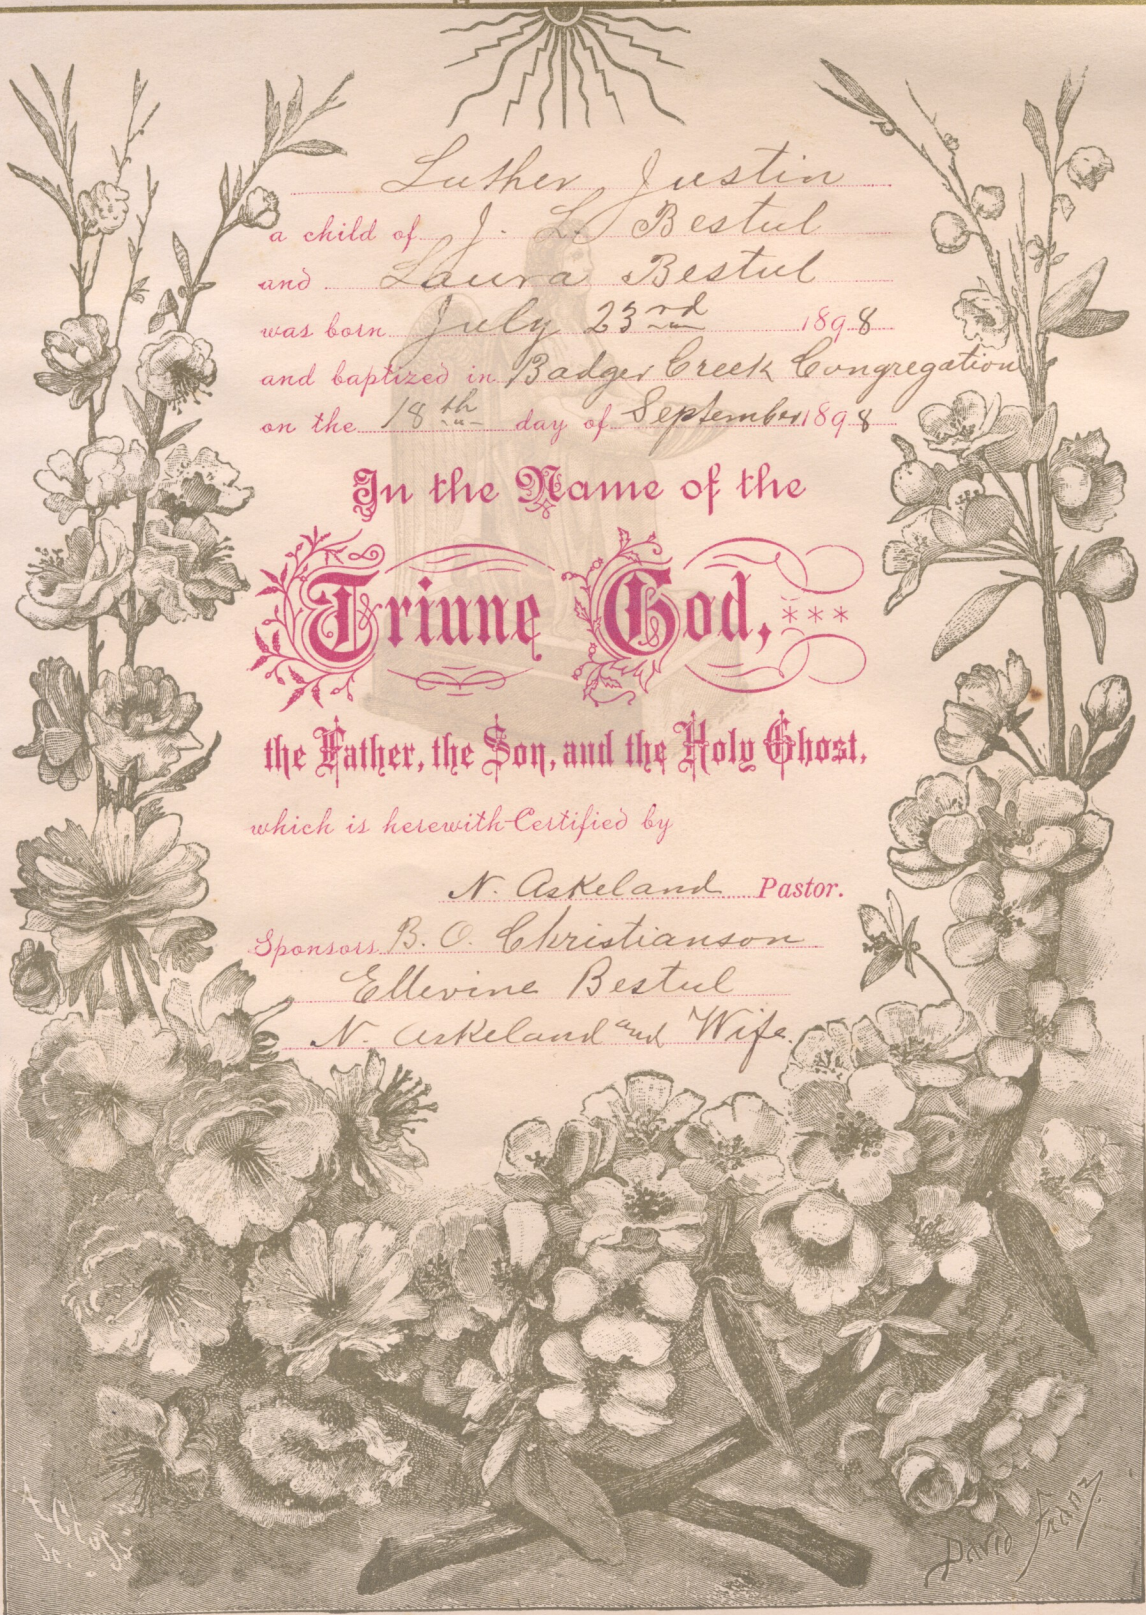 Luther Justin
a child of J. L. Bestul
and Laura Bestul
was born July 23rd 1898
and baptized in Badger Creek Congregation
on the 18th day of September 1898
In the Name of the
Triune God, ***
the Father, the Son, and the Holy Ghost,
which is herewith Certified by
N. Askeland Pastor.
Sponsors B. O. Christianson
Ellevine Bestul
N. Askeland and Wife.
David Franz